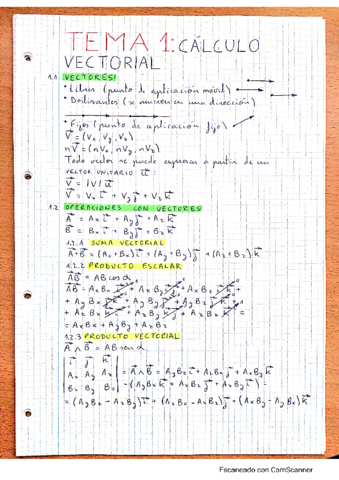 TEMA 1: CÁLCULO
VECTORIAL
1.1 VECTORES
• Libres (punto de aplicación móvil)
• Deslizantes (se mueven en una dirección)
• Fijos (punto de aplicación fijo)
V⃗ = (Vx, Vy, Vz)
nV⃗ = (nVx, nVy, nVz)
Todo vector se puede expresar a partir de un
VECTOR UNITARIO: u⃗:
V⃗ = |V| u⃗
V⃗ = Vx i⃗ + Vy j⃗ + Vz k⃗
1.2 OPERACIONES CON VECTORES
A⃗ = Ax i⃗ + Ay j⃗ + Az k⃗
B⃗ = Bx i⃗ + By j⃗ + Bz k⃗
1.2.1 SUMA VECTORIAL
A⃗+B⃗ = (Ax+Bx) i⃗ + (Ay+By) j⃗ + (Az+Bz) k⃗
1.2.2 PRODUCTO ESCALAR
A⃗B⃗ = AB cos α
= AxBx + AyBy + AzBz
1.2.3 PRODUCTO VECTORIAL
A⃗ ∧ B⃗ = AB sen α
i⃗ j⃗ k⃗
Ax Ay Az = A⃗∧B⃗ = AyBz i⃗ + AzBx j⃗ + AxBy k⃗
Bx By Bz - (AyBx k⃗ + AxBz j⃗ + AzBy i⃗) =
= (AyBz - AzBy) i⃗ + (AzBx - AxBz) j⃗ + (AxBy - AyBx) k⃗
Escaneado con CamScanner